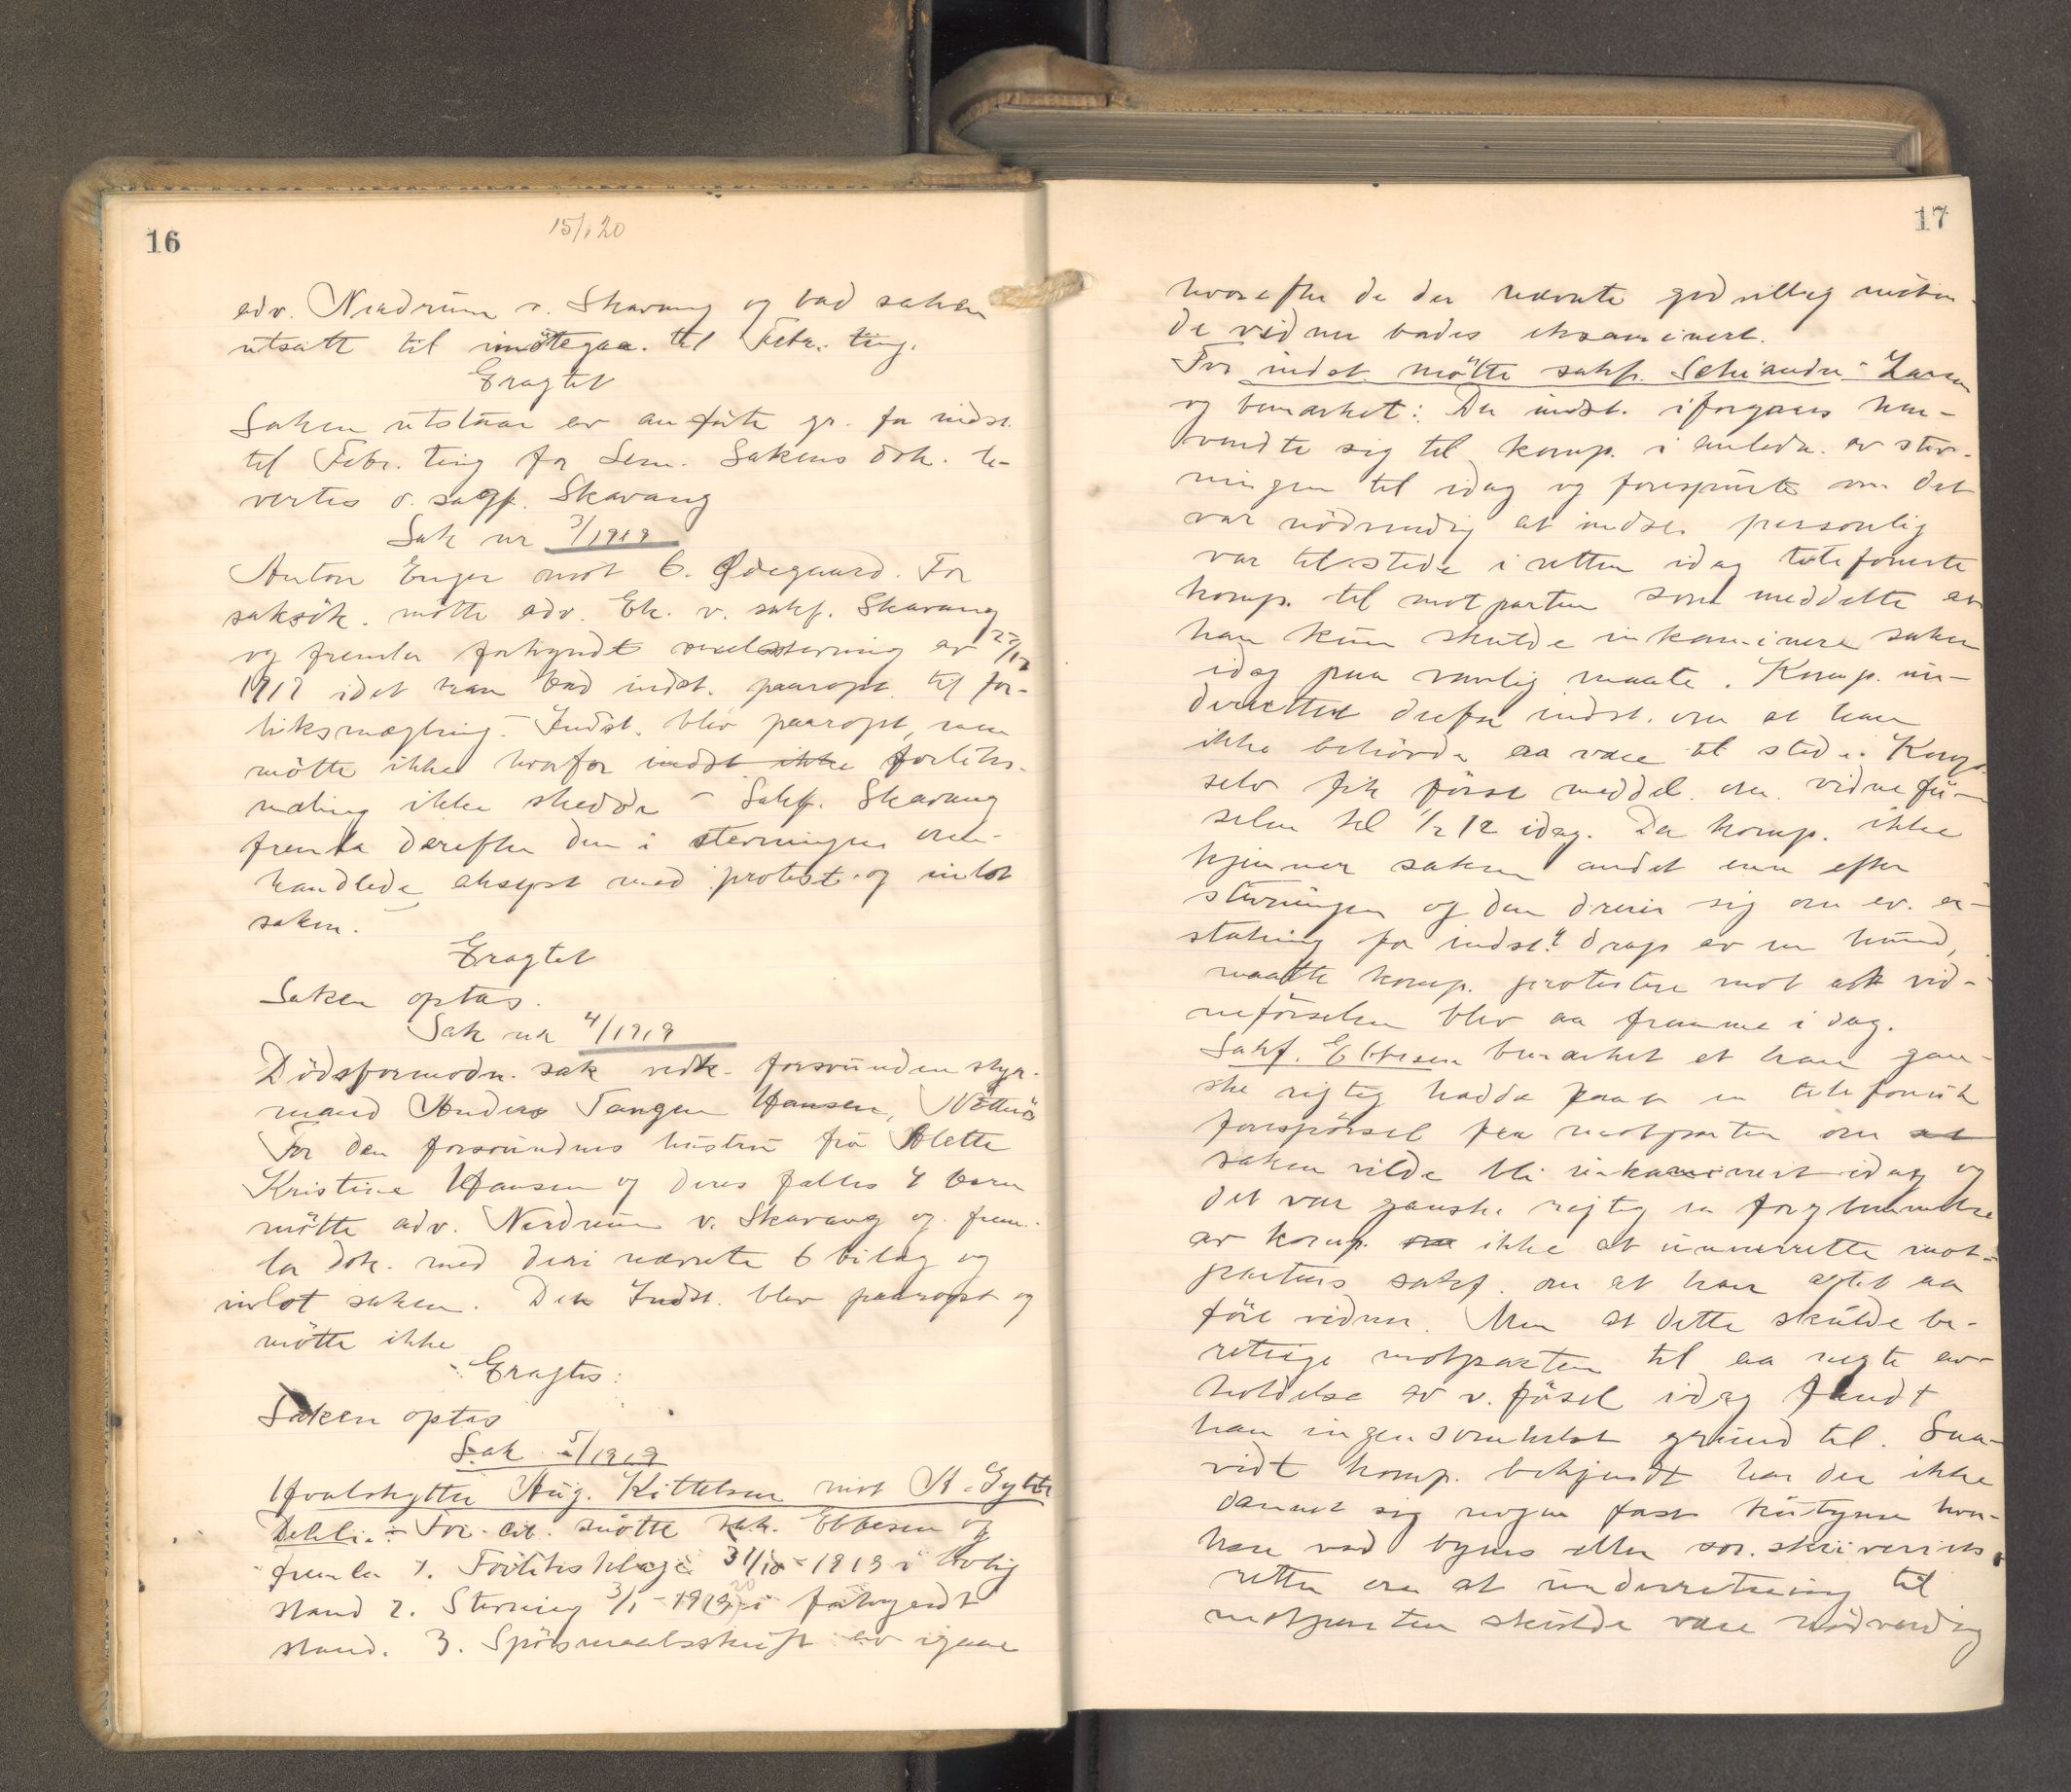 16
15/1 20
adv. Nerdrum v. Skavang og bad saken
utsatt til imøtegaa. til Febr. ting.
Eragtet
Saken utstaar av anførte gr. for indst.
til Febr. ting for Sem. Sakens dok. le-
vertes o. sagf. Skavang
Sak nr 3/1919
Anton Enger mot C. Ødegaard. For
saksøk. møtte adv. Ek. v. sakf. Skavang
og fremla forkyndt stevning av
idet han bad indst. paaropt til for-
liksmægling. - Indst. blev paaropt, men
møtte ikke hvorfor indst ikke forliks-
mekling ikke skedde - Sakf. Skavang
fremla derefter den i stevningen om-
handlede aksept med protest og inlot
saken. -
Eragtet
Saken optas.
Sak nr 4/1919
Dødsformodn. sak vedk. forsvunden styr-
mand Anders Tangen Hansen, Nøtterö
For den forsvundnes hustru fru Alette
Kristine Hansen og deres fælles 4 barn
møtte adv. Nerdrum v. Skavang og frem-
la dok. med deri nævnte 6 bilag og
inlot saken. Den Indst. blev paaropt og
møtte ikke
Eragtes:
Saken optas
Sak 5/1919
Hvalskytter Aug. Kittelsen mot A. Gylter
Dehli. - For cit. møtte sak. Ebbesen og
fremla 1. Forliksklage 31/10 - 1919 i lovlig
stand 2. Stevning 3/1 - 1919 20 i forkyndt
stand. 3. Spørsmaalsskrift av igaar
17
hvorefter de der nævnte godvillig møten-
de vidner bades eksaminert.
For indst. møtte sakf. Schiander-Larsen
og bemærket: Da indst. iforgaars hen-
vendte sig til komp. i anledn. av stev-
ningen til idag og forespurte om det
var nødvendig at indst. personlig
var tilstede i retten idag telefonerte
komp. til motparten som meddelte at
han kun skulde inkaminere saken
idag paa vanlig maate. Komp. un-
derrettet derfor indst. om at han
ikke behøvde aa være til stede. Komp.
selv fik først meddel. om vidnefø-
selen kl 1/2 12 idag. Da komp. ikke
kjenner saken andet enn efter
stevningen og den dreier sig om ev. er-
statning for indst.s drap av en hund,
maatte komp. protestere mot at vid-
neførselen blev aa fremme i dag.
Sakf. Ebbesen bemærket at han gan-
ske rigtig hadde faat en telefonisk
forespørsel fra motparten om at
saken vilde bli inkaminert idag og
det var ganske rigtig en forglemmelse
av komp. ikke at underrette mot-
partens sakf. om at han agtet aa
føre vidner. Men at dette skulde be-
rettige motparten til aa negte av-
holdelse av v. førsel idag fandt
han ingensomhelst grund til. Saa-
vidt komp. bekjendt har der ikke
dannet sig nogen fast kutyme hver-
ken ved byens eller sor.skriverens
retter om at underretning til
motparten skulde være nødvendig